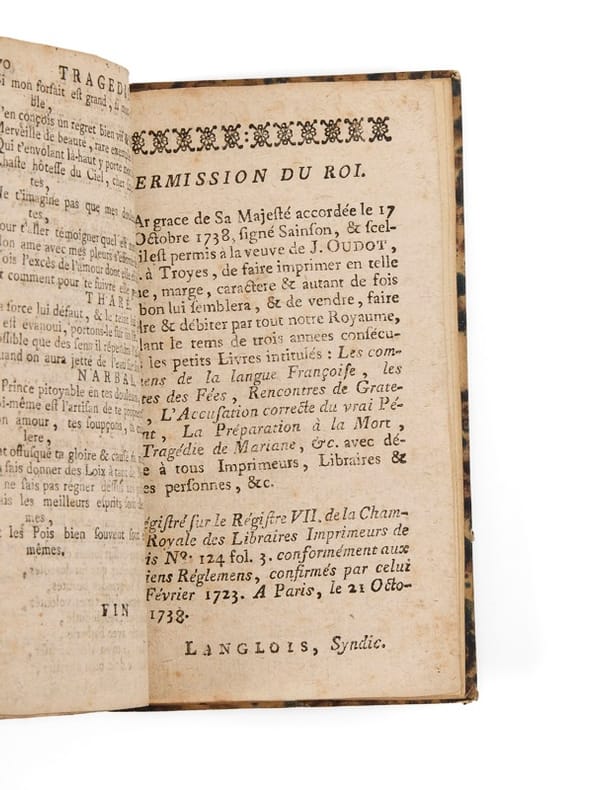 TRAGEDI
i mon forfait est grand, si mon
ble,
'en conçois un regret bien vif &
Merveille de beauté, rare exemp
Qui t'envolant là-haut y porte
haste hôtesse du Ciel, cher
tes,
Ne t'imagine pas que mes
tes,
our t'aller témoigner quel est
on ame avec mes pleurs
ois l'excés de l'amour dont elle
comment pour te suivre elle
THARÉ,
a force lui défaut, & le teint lui
est évanoui, portons-le sur
ossible que des sens il répendra
uand on aura jetté de l'eau
NARBAL,
Prince pitoyable en tes douleurs
i-même est l'artisan de te propre
on amour, tes soupçons, ta
lere,
t offusqué ta gloire & causé
sais donner des Loix à tant de
ne sais pas régner dessus
ais les meilleurs esprits font
mes,
t les Pois bien souvent sont
mêmes.
FIN
ERMISSION DU ROI.
Ar grace de Sa Majesté accordée le 17
Octobre 1738, signé Sainson, & scel-
il est permis à la veuve de J. OUDOT,
. à Troyes, de faire imprimer en telle
me, marge, caractére & autant de fois
bon lui semblera, & de vendre, faire
dre & débiter par tout notre Royaume,
dant le tems de trois années consécu-
les petits Livres intitulés : Les com-
mens de la langue Françoise, les
tes des Fées, Rencontres de Grate-
, L'Accusation correcte du vrai Pé-
nt, La Préparation à la Mort,
Tragédie de Mariane, &c. avec dé-
e à tous Imprimeurs, Libraires &
es personnes, &c.
égistré sur le Régistre VII. de la Cham-
Royale des Libraires Imprimeurs de
is Nº. 124 fol. 3. conformément aux
iens Réglemens, confirmés par celui
Février 1723. A Paris, le 21 Octo-
1738.
LANGLOIS, Syndic.